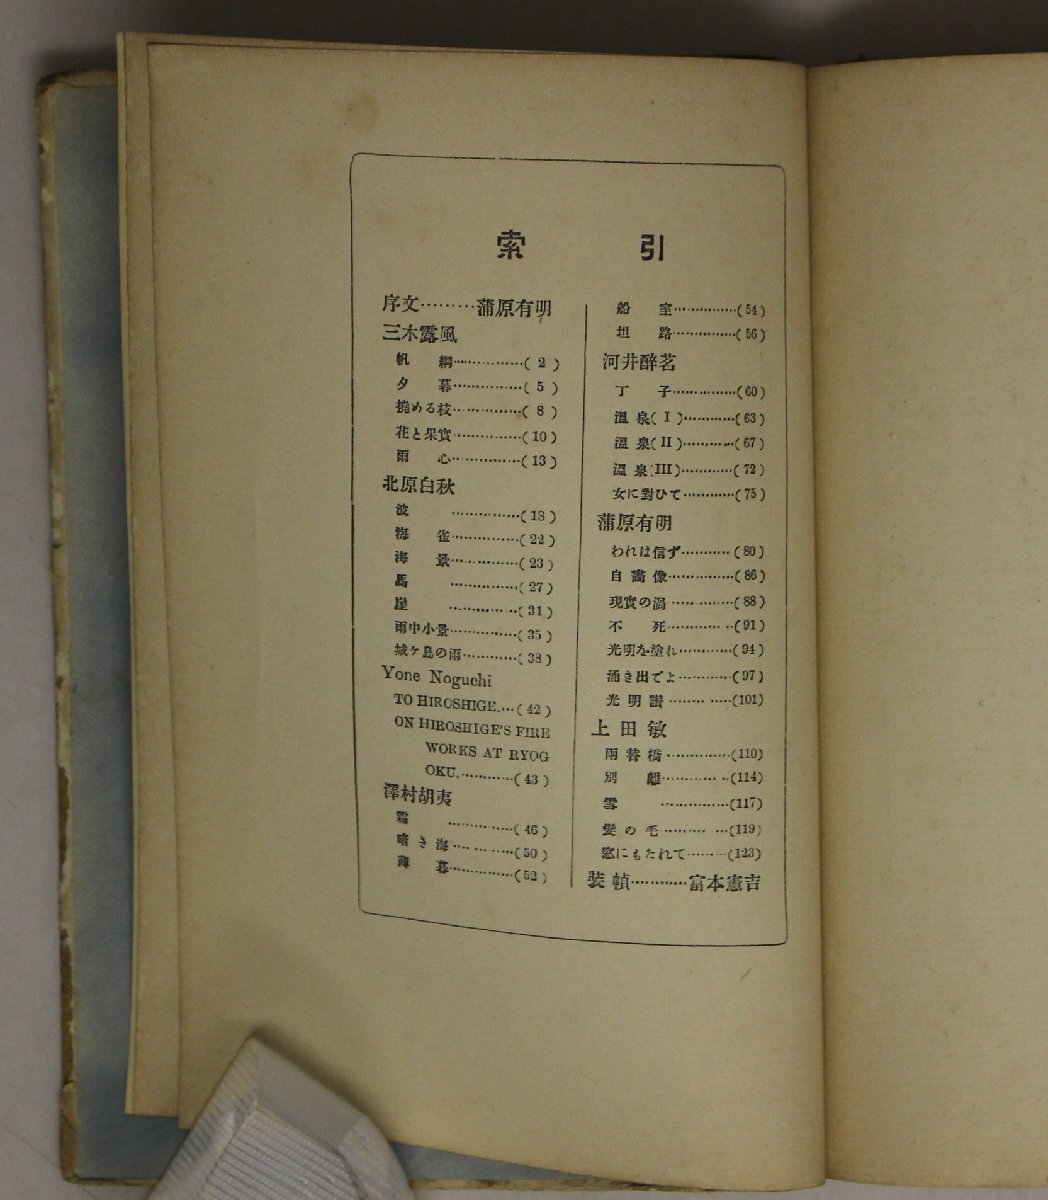 索引
序文………蒲原有明
三木露風
帆綱……………( 2 )
夕暮……………( 5 )
撓める枝……………( 8 )
花と果實……………(10)
雨心……………(13)
北原白秋
波……………(18)
海雀……………(22)
海景……………(23)
馬……………(27)
崖……………(31)
雨中小景……………(35)
城ケ島の雨…………(38)
Yone Noguchi
TO HIROSHIGE.…(42)
ON HIROSHIGE'S FIRE
WORKS AT RYOG
OKU.…………(43)
澤村胡夷
霜……………(46)
暗き海……………(50)
薄暮……………(52)
船室……………(54)
坦路……………(56)
河井醉茗
丁子……………(60)
溫泉(I)…………(63)
溫泉(II)…………(67)
溫泉(III)…………(72)
女に對ひて…………(75)
蒲原有明
われは信ず…………(80)
自畵像……………(86)
現實の渦……………(88)
不死……………(91)
光明を塗れ…………(94)
涌き出でよ…………(97)
光明讃……………(101)
上田敏
兩替橋……………(110)
別離……………(114)
雪……………(117)
髮の毛……………(119)
窓にもたれて………(123)
裝幀…………富本憲吉